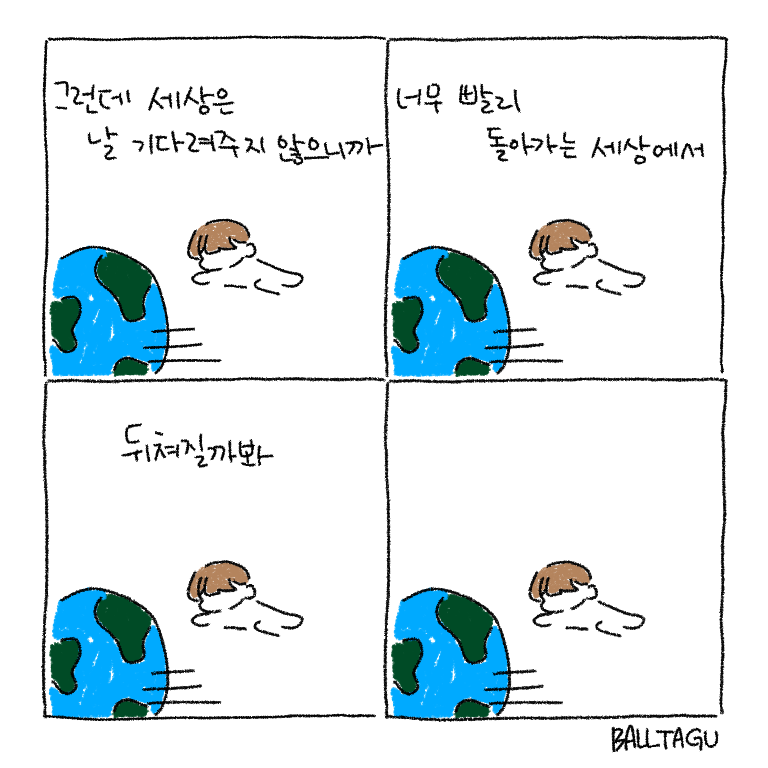 그런데 세상은
날 기다려주지 않으니까
너무 빨리
돌아가는 세상에서
뒤쳐질까봐
BALLTAGU